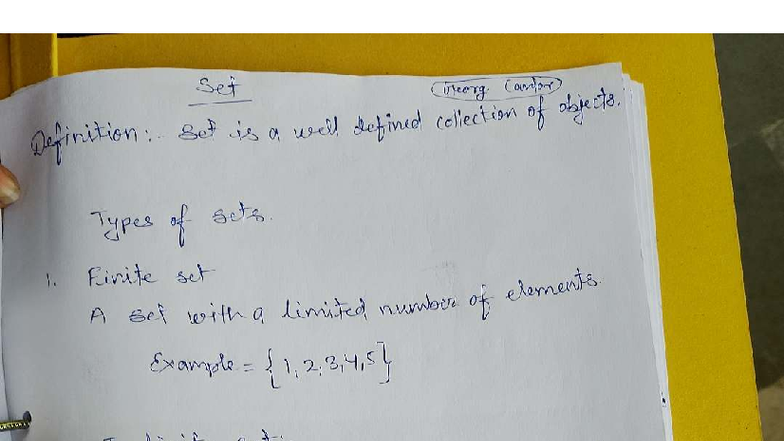 Set
Georg Cantor
Definition:- Set is a well defined collection of objects.
Types of sets.
1. Finite set
A set with a limited number of elements.
Example = {1, 2, 3, 4, 5}